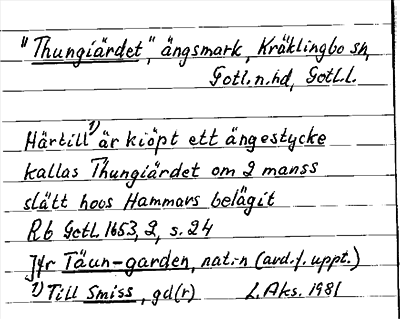 "Thungiärdet", ängsmark, Kräklingbo sn,
Gotl. n. hd, Gotl. l.
Härtill 1) är kiöpt ett ängestycke
kallas Thungiärdet om 2 manss
slätt hoos Hammars belägit
Rb Gotl 1653, 2, s. 24
Jfr Täun-garden, nat.-n (avd. f. uppt.)
1) Till Smiss, gd(r) L. Aks. 1981